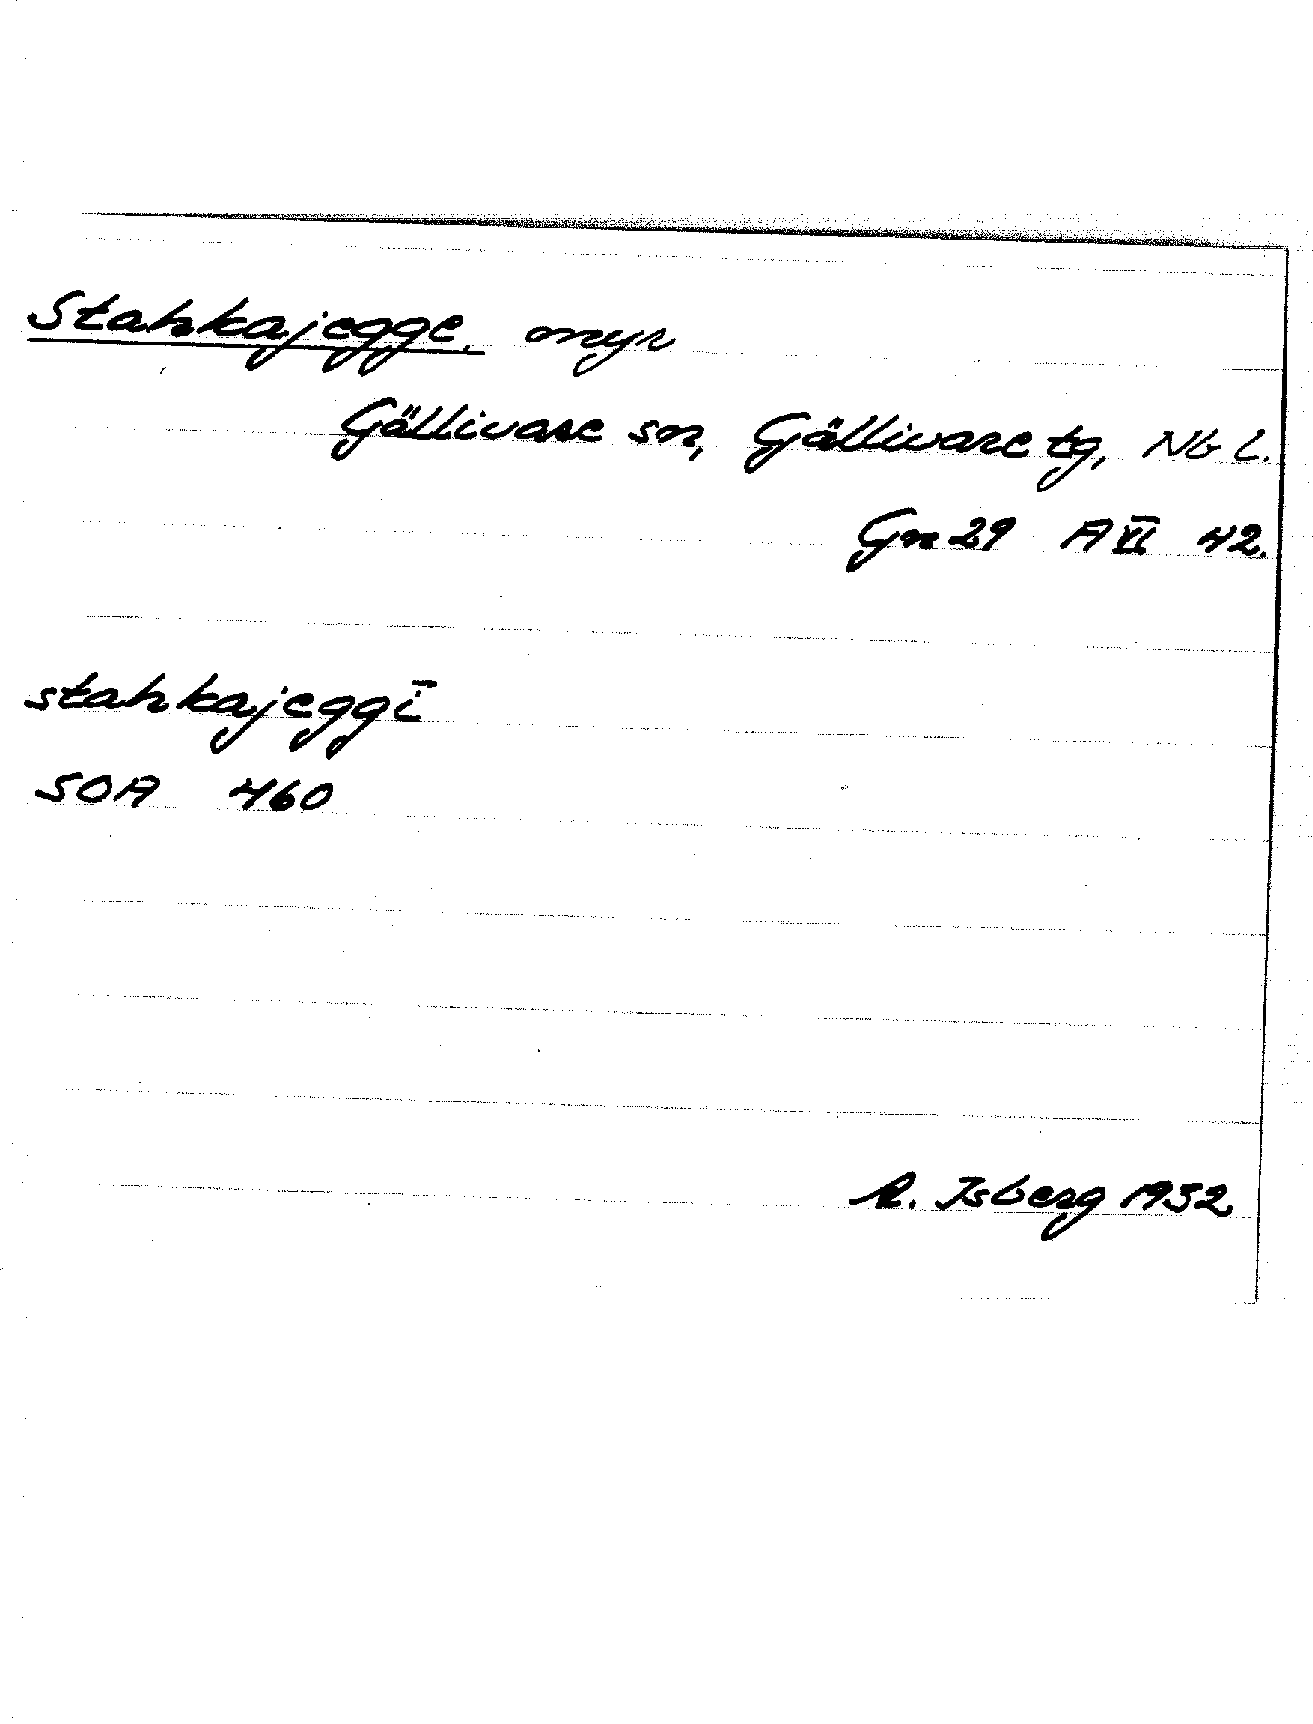 Stahkajegge, myr
Gällivare sn, Gällivare tg, Nb l.
Gn 29 A VI 42.
stahkajeggī
SOA 460
R. Isberg 1932.